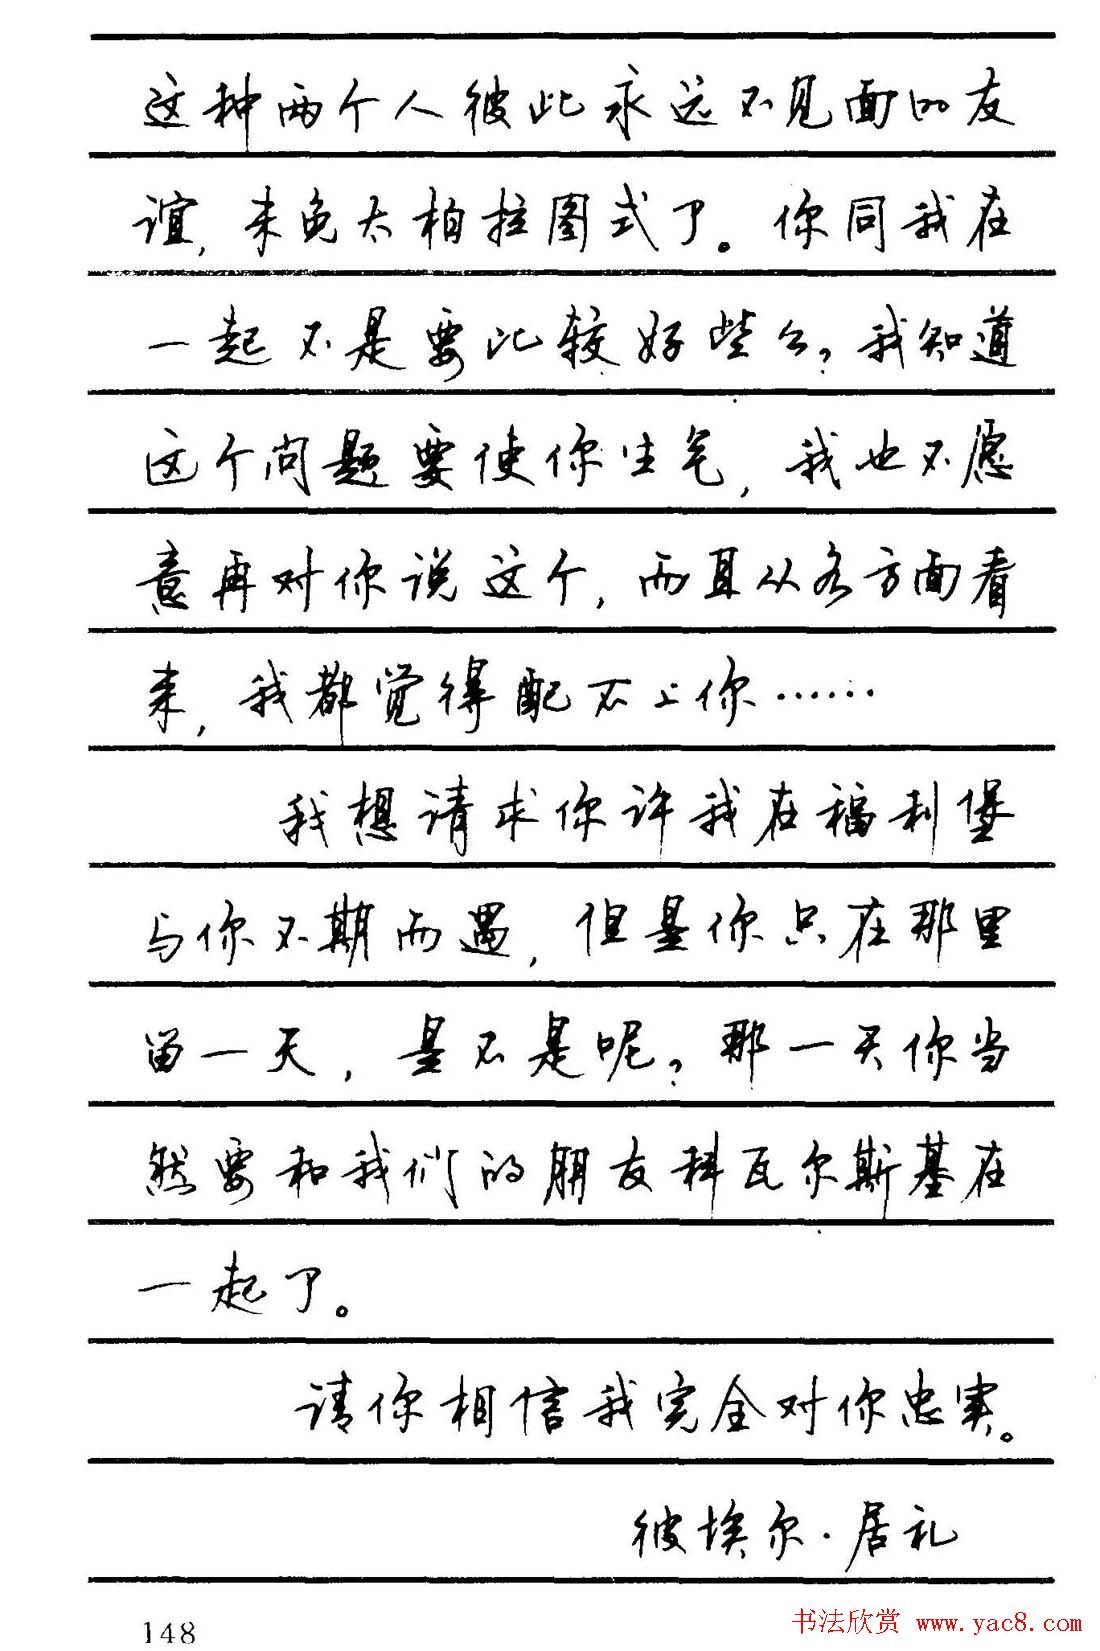 这种两个人彼此永远不见面的友
谊,未免太柏拉图式了。你同我在
一起不是要比较好些么?我知道
这个问题要使你生气,我也不愿
意再对你说这个,而且从各方面看
来,我都觉得配不上你……
我想请求你许我在福利堡
与你不期而遇,但是你只在那里
留一天,是不是呢?那一天你当
然要和我们的朋友科瓦尔斯基在
一起了。
请你相信我完全对你忠实。
彼埃尔·居礼
148
书法欣赏 www.yac8.com